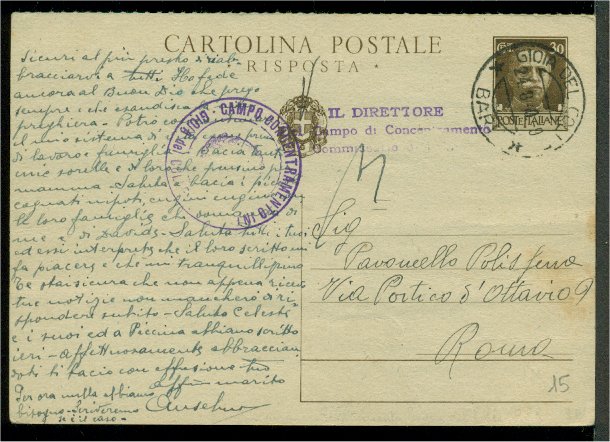 CARTOLINA POSTALE
RISPOSTA
30
POSTE ITALIANE
GIOIA DEL COLLE
BARI
IL DIRETTORE
Campo di Concentramento
GIOIA DEL COLLE CAMPO CONCENTRAMENTO INT.
Sicuri al più presto di riab-
bracciarvi tutti Ho fede
ancora al Buon Dio che prego
sempre e che esaudisca
preghiera - Potro
il mio sistema di
di lavoro e famiglia Bacia tant
mie sorelle e
mamma. Saluta bacia i
cognati nipoti, cugini
le loro famiglie
me e di Davids - Saluta tutti i tuoi
ed essi interpreta che il loro scritto mi
fa piacere e che mi tranquillizzo
Te sta sicura che non appena ricevo
tue notizie non mancherò di ri-
spondere subito - Saluto Celeste
e i suoi ed a Piccina abbiamo scritto
ieri - affettuosamente abbraccian
doti ti bacio con effusione tuo
aff.mo marito
Per ora nulla abbiamo
bisogno - Scriveremo
se è il caso -
Anselmo
Sig
Pavoncello Polissena
Via Portico d'Ottavia 9
Roma
15